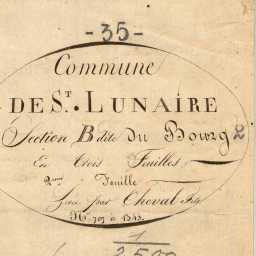 - 35 -
Commune
DE St. LUNAIRE
Section B dite du Bourg 2
En trois Feuilles
2eme Feuille
Levée par Cheval
No. 707 à 1343.
1
2500